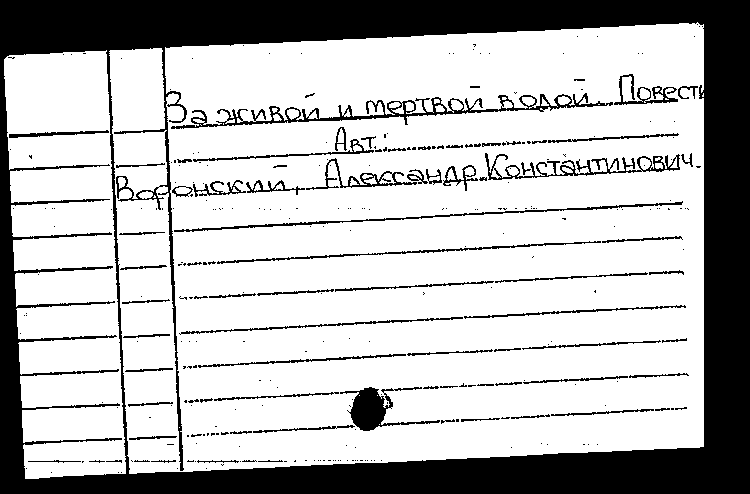 За живой и мертвой водой. Повести
Авт.:
Воронский, Александр Константинович.